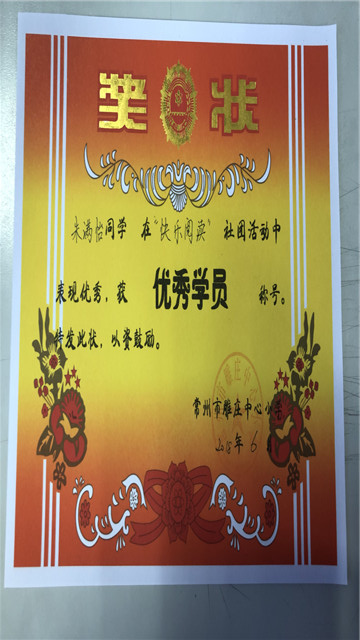 奖状
朱满怡同学 在“快乐阅读”社团活动中
表现优秀，获 优秀学员 称号。
特发此状，以资鼓励。
常州市雕庄中心小学
2018年6月